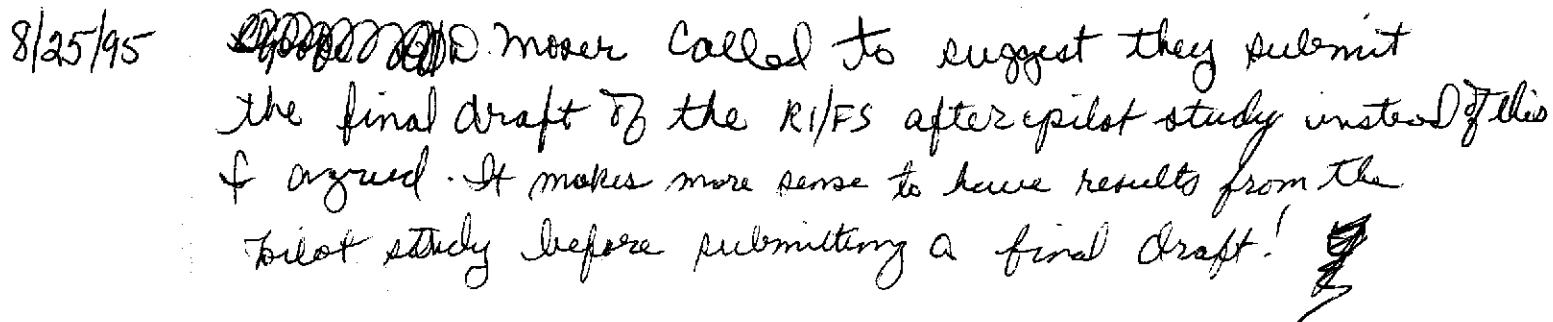 8/25/95 D. Moser called to suggest they submit
the final draft of the RI/FS after pilot study instead of this
I agreed. It makes more sense to have results from the
pilot study before submitting a final draft!